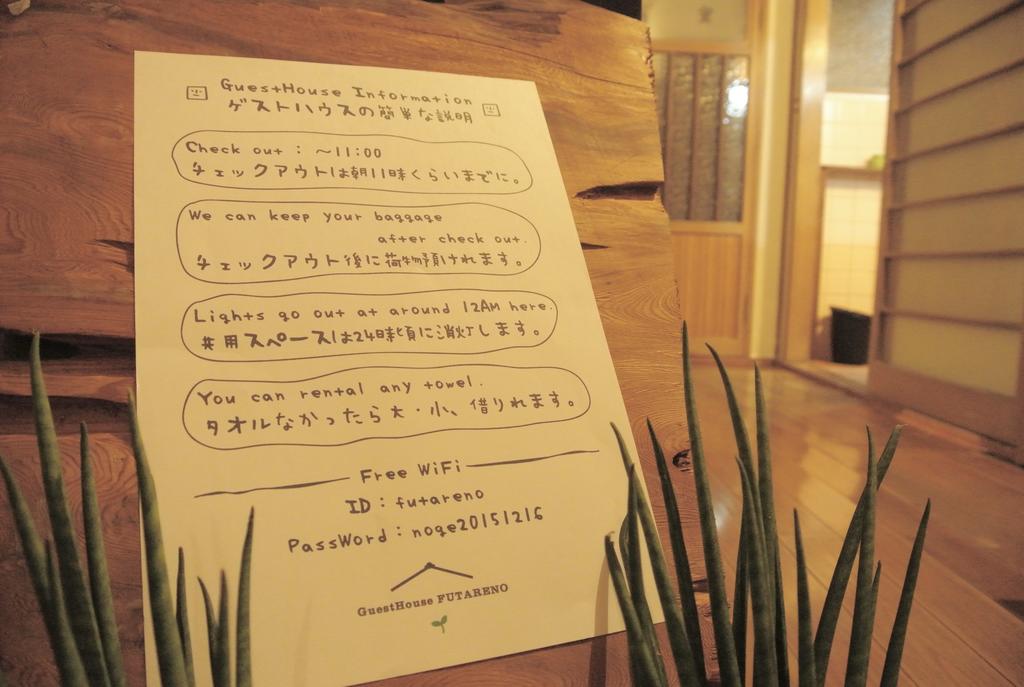 GuestHouse Information
ゲストハウスの簡単な説明
Check out : ～11:00
チェックアウトは朝11時くらいまでに。
We can keep your baggage
after check out.
チェックアウト後に荷物預けれます。
Lights go out at around 12AM here.
共用スペースは24時頃に消灯します。
You can rental any towel.
タオルなかったら大・小、借りれます。
Free WiFi
ID : futareno
PassWord : noge20151216
GuestHouse FUTARENO